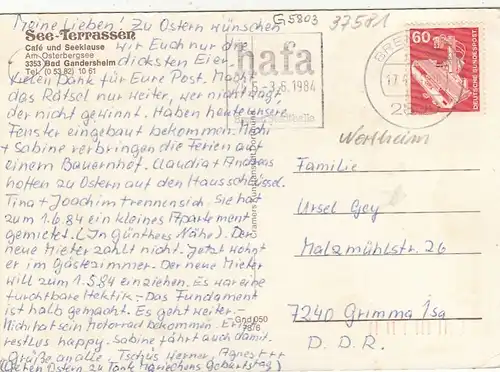 Meine Lieben! Zu Ostern wünschen
See-Terrassen
Café und Seeklause
Am-Osterbergsee
3353 Bad Gandersheim
Tel. (0 53 82) 10 61
wir Euch nur die
dicksten Eier.
Vielen Dank für Eure Post. Macht
das Rätsel nur weiter, wer nicht wagt,
der nicht gewinnt. Haben heute unsere
Fenster eingebaut bekommen. Michi
+ Sabine verbringen die Ferien auf
einem Bauernhof. Claudia + Andreas
hoffen zu Ostern auf den Hausschlüssel.
Tina + Joachim trennen sich. Sie hat
zum 1.6.84 ein kleines Apartement
gemietet. (In Günthers Nähe). Der
neue Mieter zahlt nicht. Jetzt wohnt
er im Gästezimmer. Der neue Mieter
will zum 1.5.84 einziehen. Es war eine
furchtbare Hektik. - Das Fundament
ist halb gemacht. Es geht weiter. -
Michi hat sein Motorrad bekommen. Er ist
restlos happy. Sabine fährt auch damit.
Grüße an alle. Tschüs Werner, Agnes + + +
G 5803
37581
hafa
3.6.1984
BRE
28
60
DEUTSCHE BUNDESPOST
Wertheim
Gnd 050
7876
Familie
Ursel Gey
Malzmühlstr. 26
7240 Grimma /Sa
D. D. R.